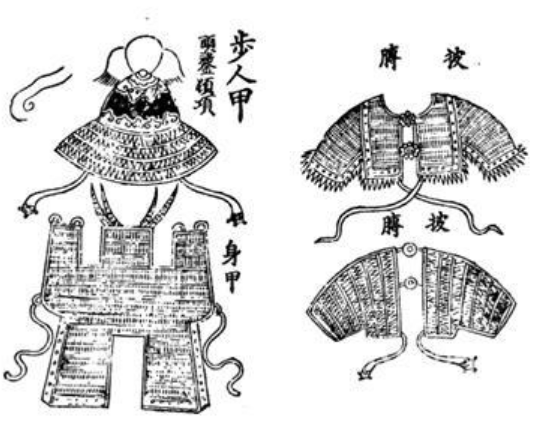 步人甲
頭鍪頓項
身甲
披膊
披膊